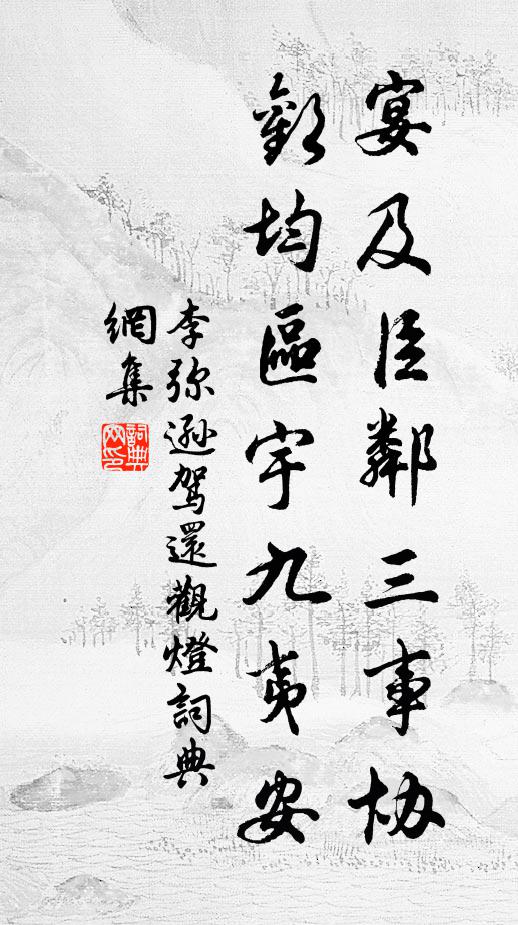 宴及臣鄰三事協
歡均區宇九夷安
李弥遜駕還觀燈詞典
網集
詞典
网印